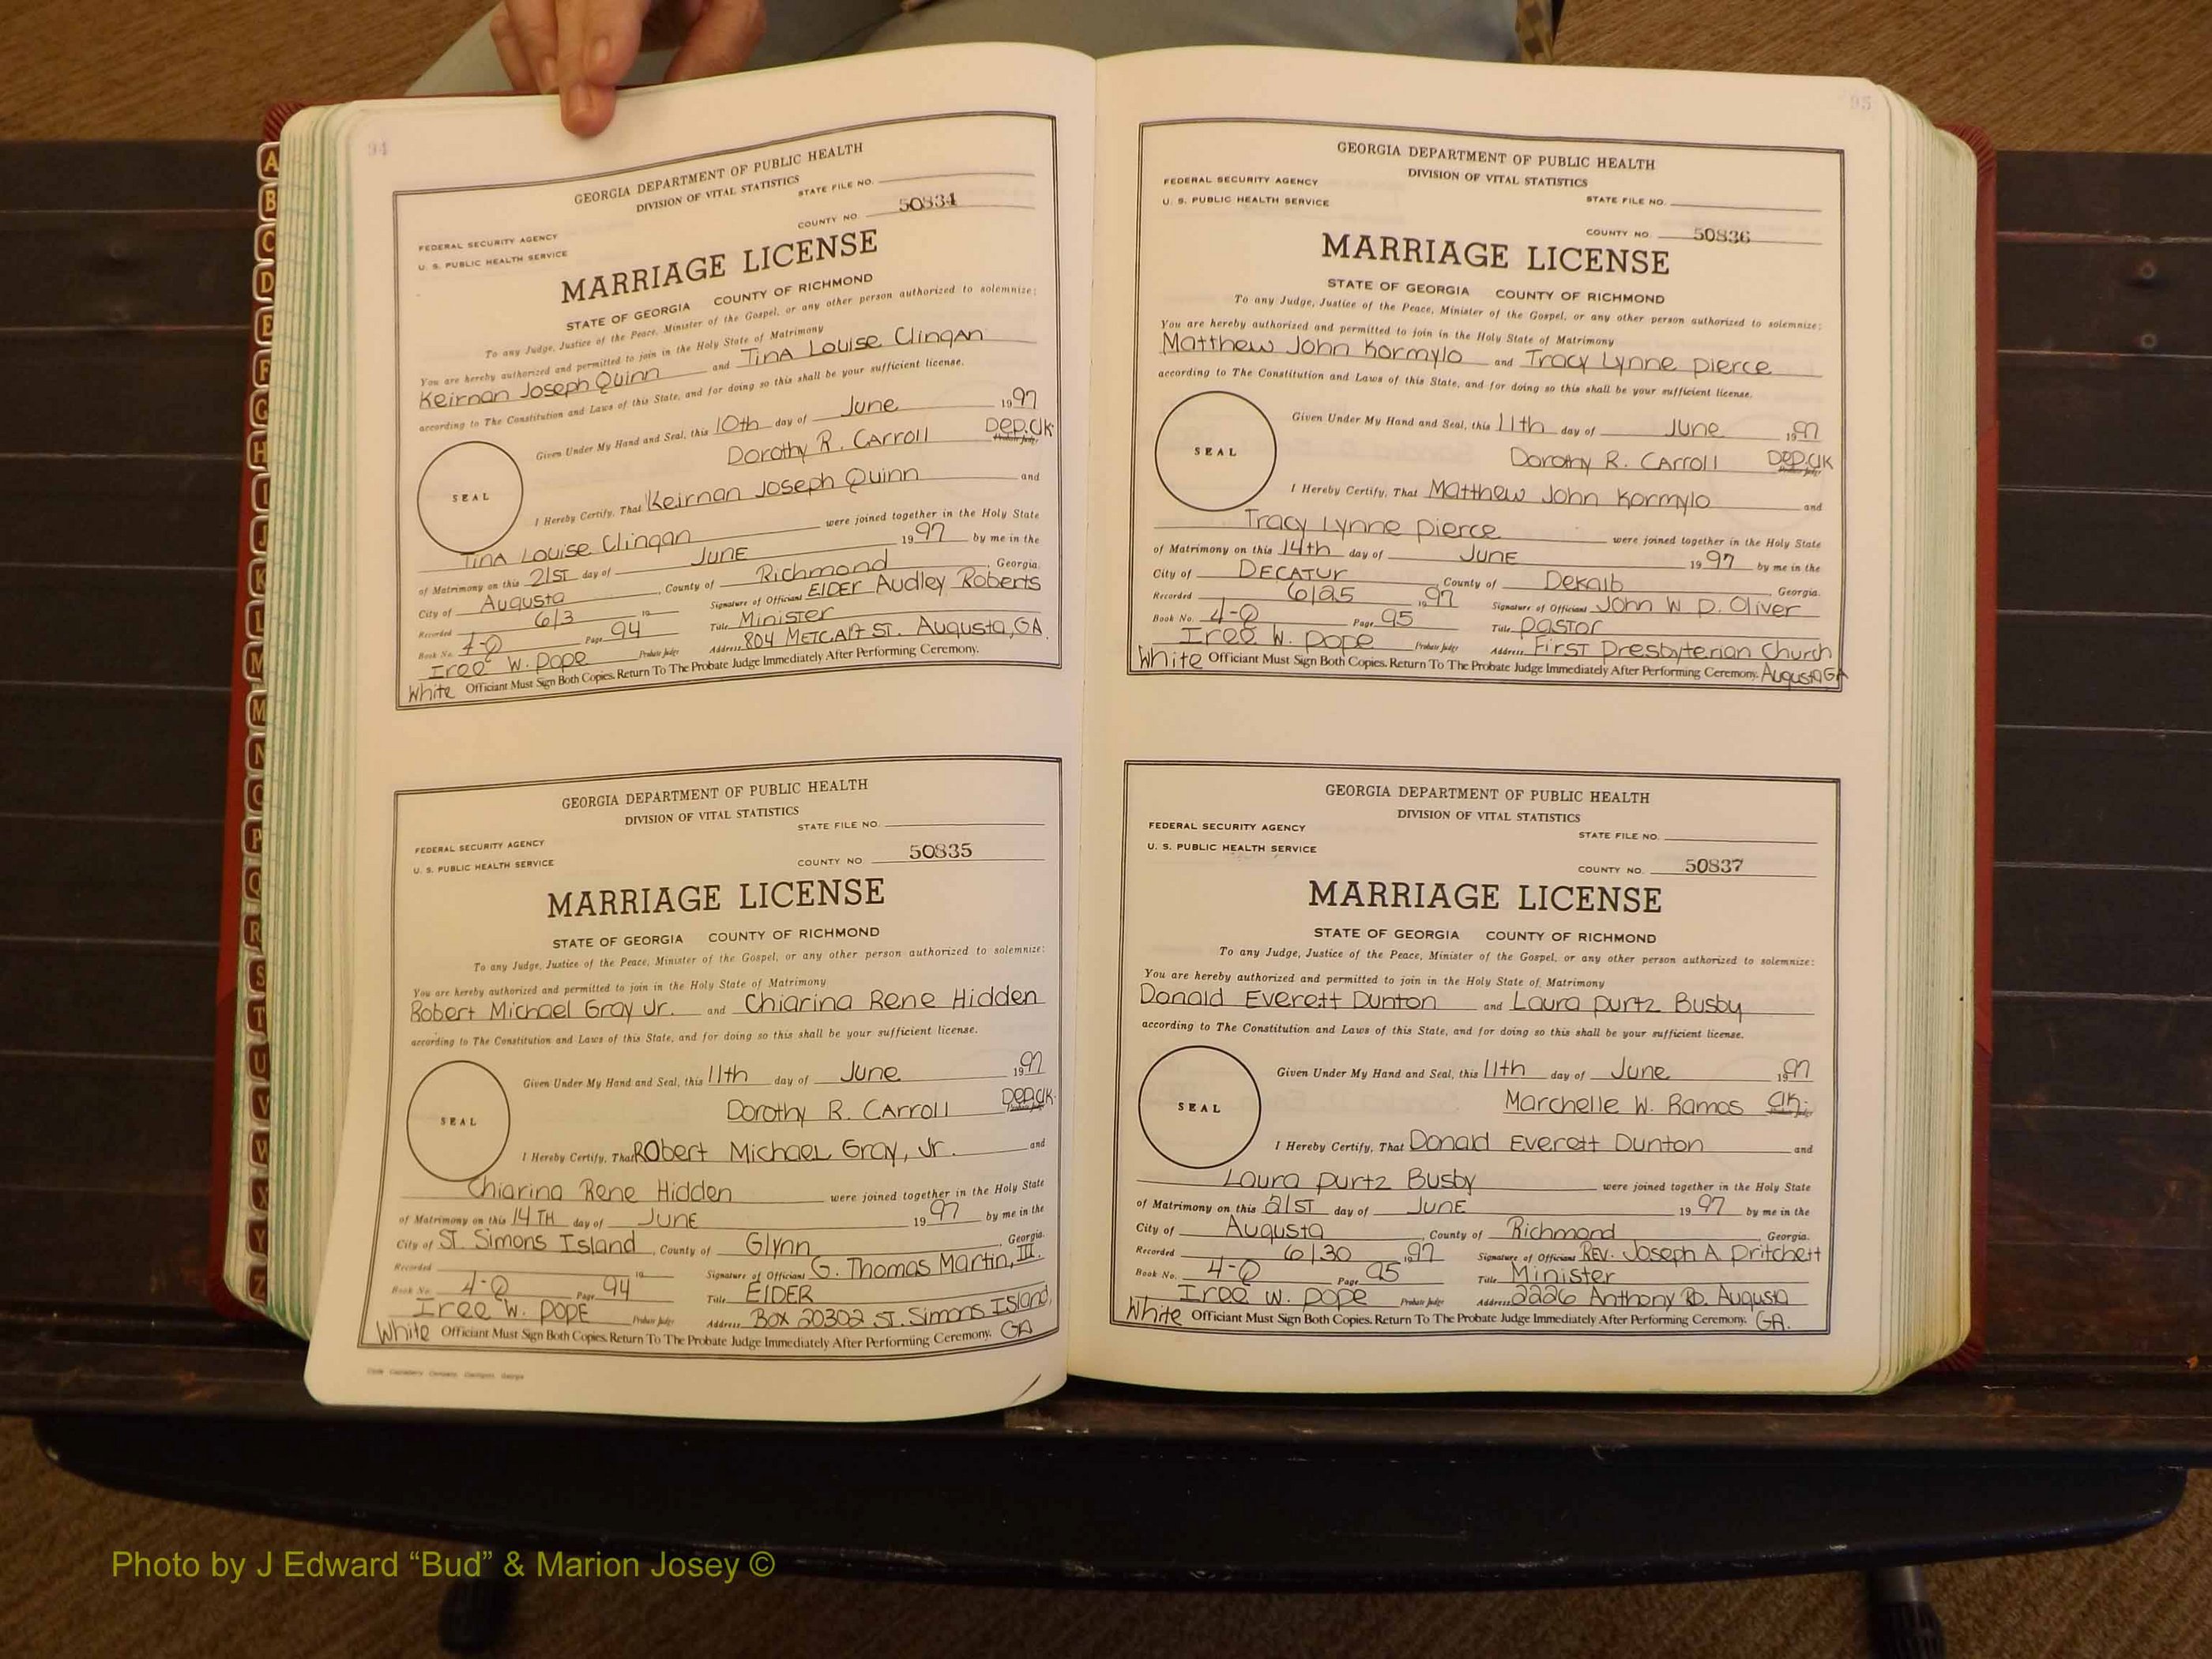 94
GEORGIA DEPARTMENT OF PUBLIC HEALTH
DIVISION OF VITAL STATISTICS
STATE FILE NO.
COUNTY NO. 50834
FEDERAL SECURITY AGENCY
U. S. PUBLIC HEALTH SERVICE
MARRIAGE LICENSE
STATE OF GEORGIA COUNTY OF RICHMOND
To any Judge, Justice of the Peace, Minister of the Gospel, or any other person authorized to solemnize:
You are hereby authorized and permitted to join in the Holy State of Matrimony
Keirnan Joseph Quinn and Tina Louise Clingan
according to The Constitution and Laws of this State, and for doing so this shall be your sufficient license.
Given Under My Hand and Seal, this 10th day of June 1997
Dorothy R. Carroll Dep. Clk
Probate Judge
SEAL
I Hereby Certify, That Keirnan Joseph Quinn and
Tina Louise Clingan were joined together in the Holy State
of Matrimony on this 21st day of June 1997 by me in the
City of Augusta, County of Richmond, Georgia.
Recorded 6/3 19 Signature of Officiant Elder Audley Roberts
Book No. 4-Q Page 94 Title Minister
Iree W. Pope Probate Judge Address 804 Metcalf St. Augusta, GA.
White Officiant Must Sign Both Copies. Return To The Probate Judge Immediately After Performing Ceremony.
GEORGIA DEPARTMENT OF PUBLIC HEALTH
DIVISION OF VITAL STATISTICS
STATE FILE NO.
FEDERAL SECURITY AGENCY
U. S. PUBLIC HEALTH SERVICE
COUNTY NO 50835
MARRIAGE LICENSE
STATE OF GEORGIA COUNTY OF RICHMOND
To any Judge, Justice of the Peace, Minister of the Gospel, or any other person authorized to solemnize:
You are hereby authorized and permitted to join in the Holy State of Matrimony
Robert Michael Gray Jr. and Chiarina Rene Hidden
according to The Constitution and Laws of this State, and for doing so this shall be your sufficient license.
Given Under My Hand and Seal, this 11th day of June 1997
Dorothy R. Carroll Dep. Clk.
Probate Judge
SEAL
I Hereby Certify, That Robert Michael Gray, Jr. and
Chiarina Rene Hidden were joined together in the Holy State
of Matrimony on this 14th day of June 1997 by me in the
City of St. Simons Island, County of Glynn, Georgia.
Recorded 19 Signature of Officiant G. Thomas Martin, III.
Book No. 4-Q Page 94 Title Elder
Iree W. Pope Probate Judge Address Box 20302 St. Simons Island,
White Officiant Must Sign Both Copies. Return To The Probate Judge Immediately After Performing Ceremony. GA
95
GEORGIA DEPARTMENT OF PUBLIC HEALTH
DIVISION OF VITAL STATISTICS
FEDERAL SECURITY AGENCY
U. S. PUBLIC HEALTH SERVICE
STATE FILE NO.
COUNTY NO. 50836
MARRIAGE LICENSE
STATE OF GEORGIA COUNTY OF RICHMOND
To any Judge, Justice of the Peace, Minister of the Gospel, or any other person authorized to solemnize:
You are hereby authorized and permitted to join in the Holy State of Matrimony
Matthew John Kormylo and Tracy Lynne Pierce
according to The Constitution and Laws of this State, and for doing so this shall be your sufficient license.
Given Under My Hand and Seal, this 11th day of June 1997
Dorothy R. Carroll Dep. Clk
Probate Judge
SEAL
I Hereby Certify, That Matthew John Kormylo and
Tracy Lynne Pierce were joined together in the Holy State
of Matrimony on this 14th day of June 1997 by me in the
City of Decatur, County of Dekalb, Georgia.
Recorded 6/25 1997 Signature of Officiant John W P. Oliver
Book No. 4-Q Page 95 Title Pastor
Iree W. Pope Probate Judge Address First Presbyterian Church
White Officiant Must Sign Both Copies. Return To The Probate Judge Immediately After Performing Ceremony. Augusta GA
GEORGIA DEPARTMENT OF PUBLIC HEALTH
DIVISION OF VITAL STATISTICS
FEDERAL SECURITY AGENCY
U. S. PUBLIC HEALTH SERVICE
STATE FILE NO.
COUNTY NO. 50837
MARRIAGE LICENSE
STATE OF GEORGIA COUNTY OF RICHMOND
To any Judge, Justice of the Peace, Minister of the Gospel, or any other person authorized to solemnize:
You are hereby authorized and permitted to join in the Holy State of Matrimony
Donald Everett Dunton and Laura Purtz Busby
according to The Constitution and Laws of this State, and for doing so this shall be your sufficient license.
Given Under My Hand and Seal, this 11th day of June 1997
Marchelle W. Ramos Clk.
Probate Judge
SEAL
I Hereby Certify, That Donald Everett Dunton and
Laura Purtz Busby were joined together in the Holy State
of Matrimony on this 21st day of June 1997 by me in the
City of Augusta, County of Richmond, Georgia.
Recorded 6/30 1997 Signature of Officiant Rev. Joseph A. Pritchett
Book No. 4-Q Page 95 Title Minister
Iree W. Pope Probate Judge Address 2226 Anthony Rd. Augusta
White Officiant Must Sign Both Copies. Return To The Probate Judge Immediately After Performing Ceremony. GA.
A
B
C
D
E
F
G
H
I
J
K
L
M
M
N
O
P
Q
R
S
T
U
V
W
X
Y
Z
Photo by J Edward “Bud” & Marion Josey ©